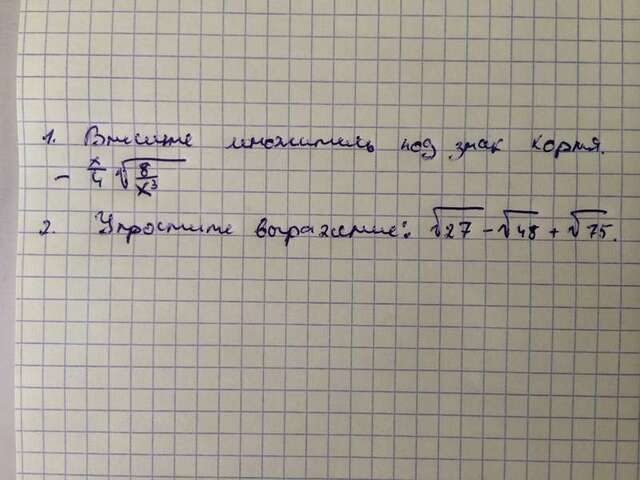 1. Внесите множитель под знак корня.
- x/4 √(8/x³)
2. Упростите выражение: √27 - √48 + √75.